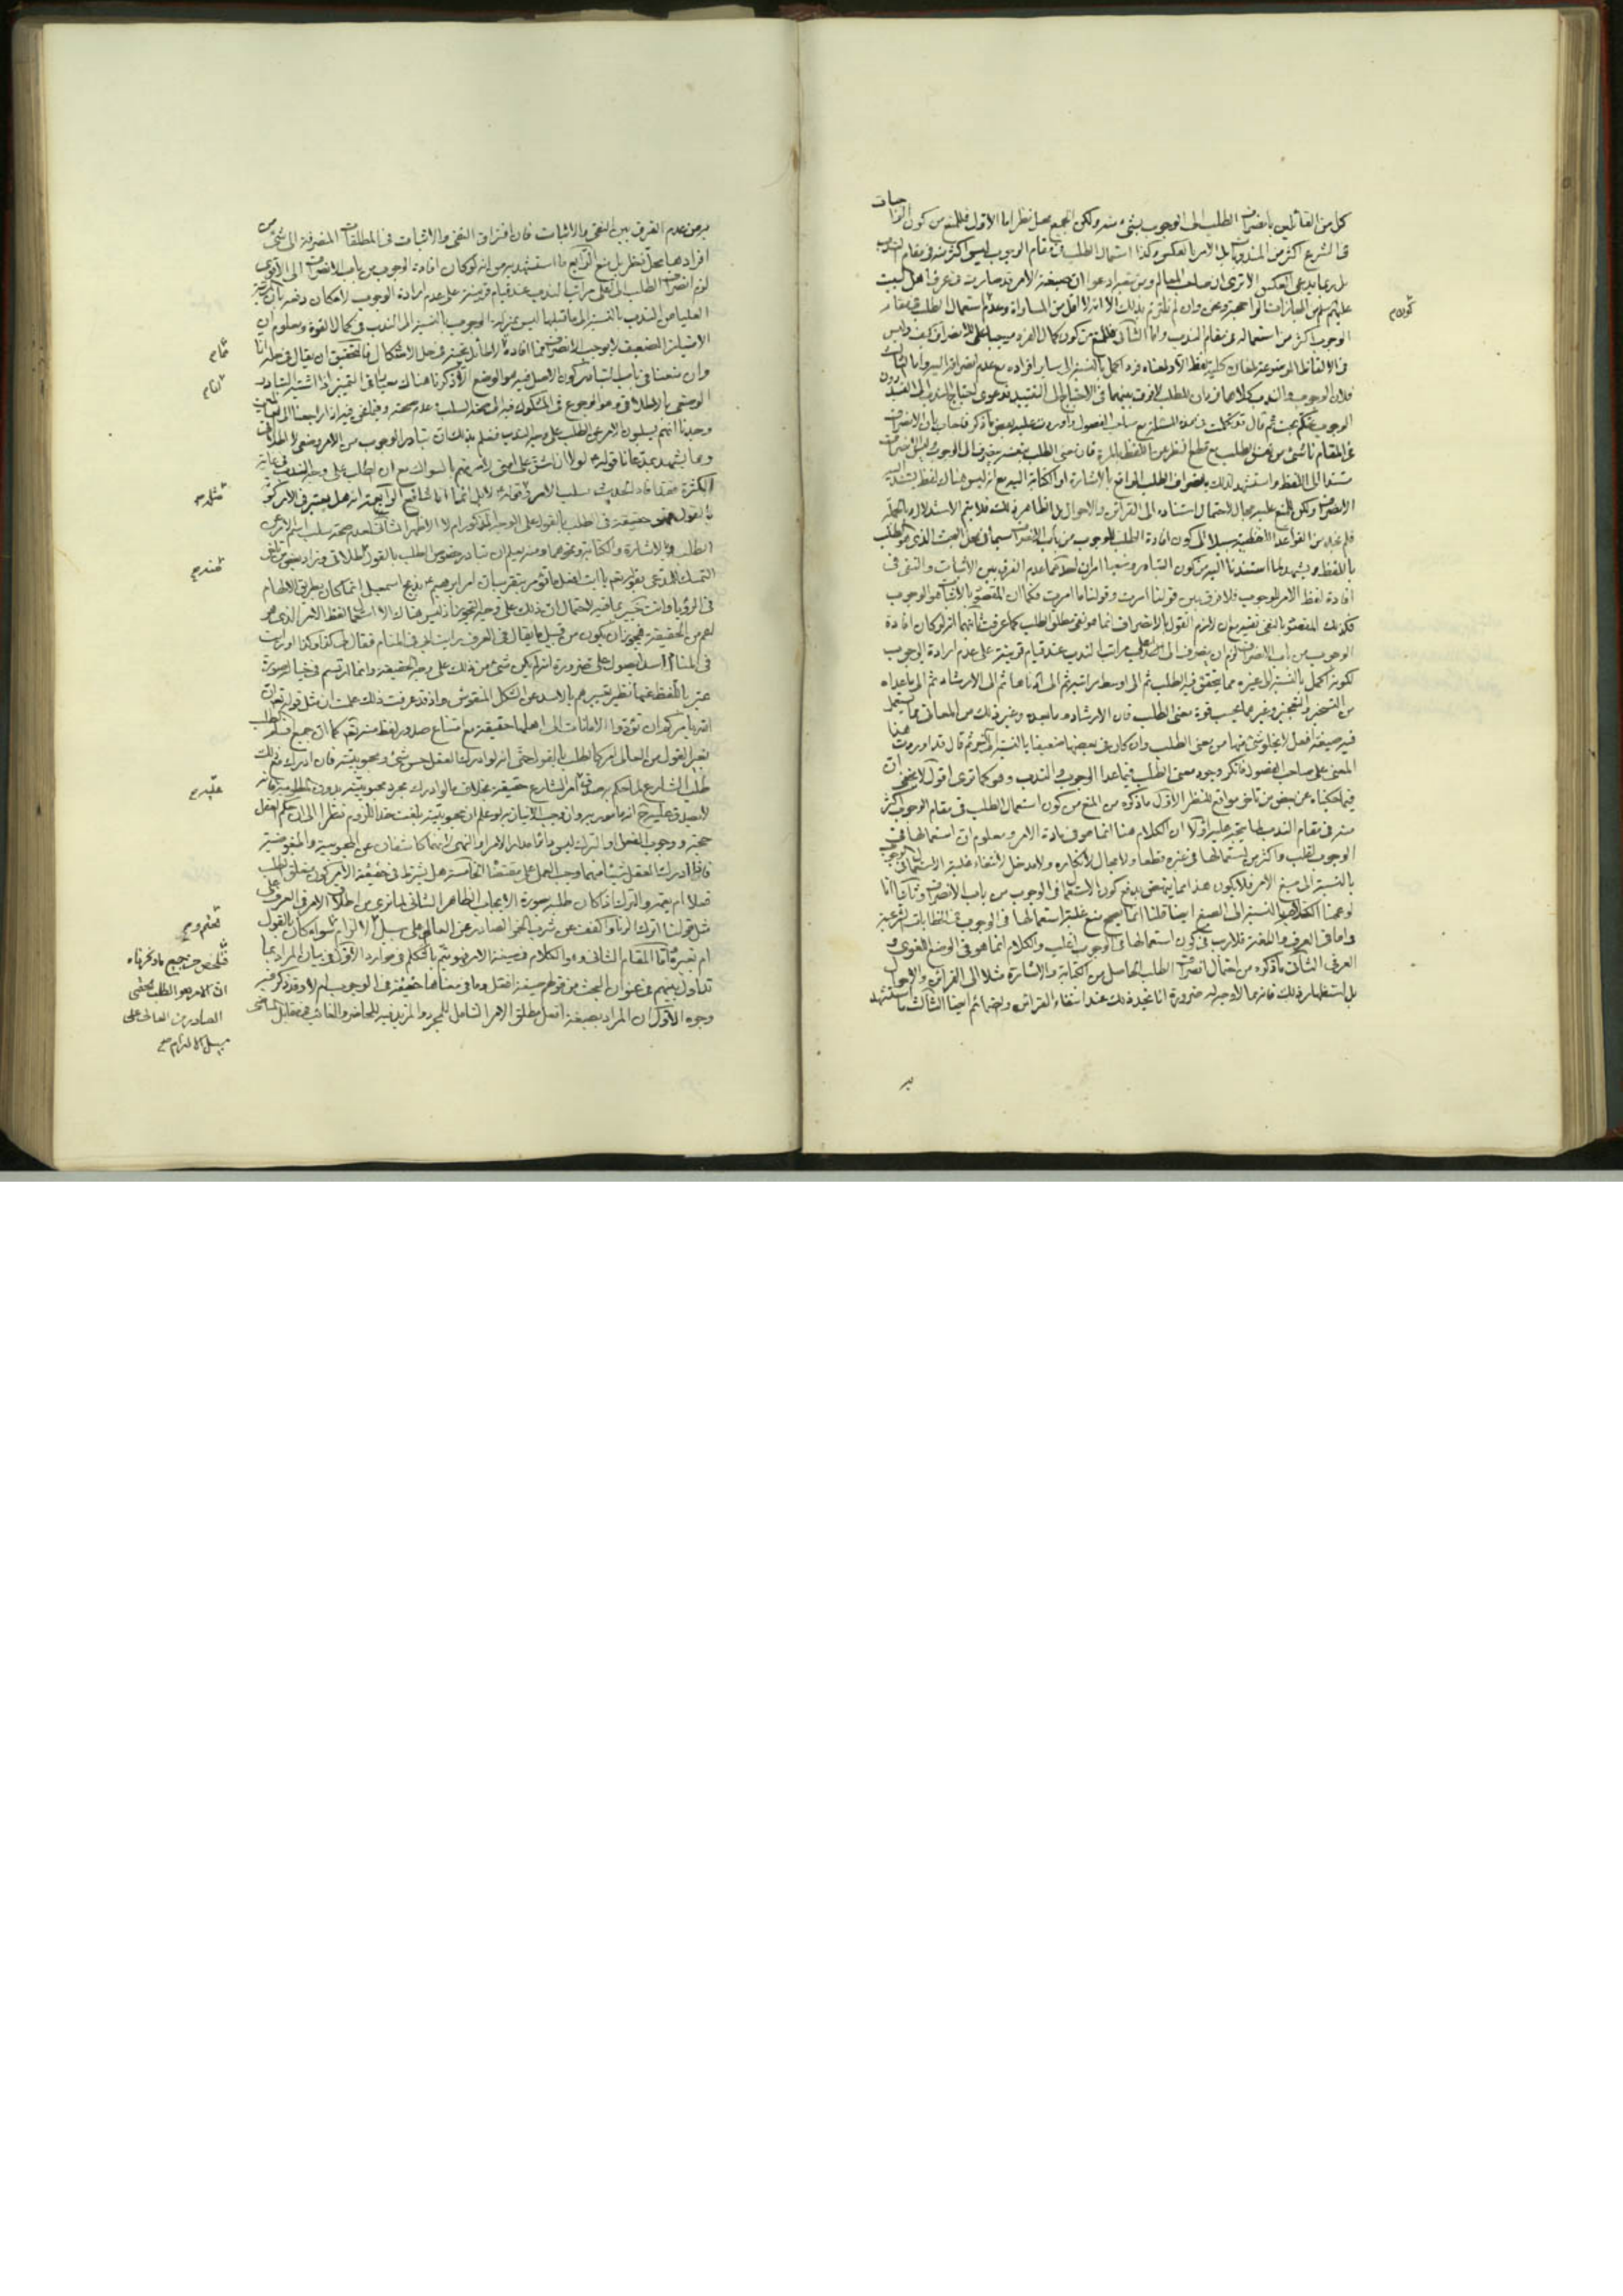 كل من القائلين بانصراف الطلب الى الوجوب بشئ منه ولكن الجميع محل نظر اما الاول فللمنع من كون الواجبات
فى الشرع اكثر من المندوبات بل الامر بالعكس وكذا استعمال الطلب فى مقام الوجوب ليس اكثر منه فى مقام الندب
بل ربما يدعى العكس الا ترى ان صاحب المعالم ومن تبعه ادعوا ان صيغة الامر قد صارت فى عرف اهل البيت
عليهم السلام من المجازات الراجحة ونحن وان لم نلتزم بذلك الا انه لا اقل من المساواة وعدم استعمال الطلب فى مقام
الوجوب اكثر من استعماله فى مقام الندب واما الثانى فللمنع من كون كمال الفرد موجبا لانصراف كيف وليس
فى الالفاظ الموضوعة لمعان كلية لفظ الا ولمعناه فرد اكمل بالنسبة الى ساير افراده مع عدم انصرافه اليه واما الثالث
فلان الوجوب والندب كلاهما فردان للطلب لا فرق بينهما فى الاحتياج الى التقييد فدعوى احتياج الندب الى القيد دون
الوجوب تحكم بحت ثم قال وقد تكلمت فى هذه المسئلة مع صاحب الفصول واوردت عليه ببعض ما ذكر فاجاب بان الانصراف
فى المقام ناشئ من نفس الطلب مع قطع النظر عن اللفظ بالمرة فان معنى الطلب بنفسه ينصرف الى الوجوب
مستندا الى اللفظ واستشهد لذلك بانصراف الطلب الواقع بالاشارة او الكتابة اليه مع انه ليس هناك لفظ يستند اليه
الانصراف ولكن للمنع عليه مجال لاحتمال استناده الى القرائن والاحوال بل الظاهر ذلك فلا يتم الاستدلال وبالجملة
فلم نجد من القواعد اللفظية سبيلا الى كون افادة الطلب للوجوب من باب الانصراف سيما فى محل البحث الذى هو الطلب
باللفظ ويشهد لما استندنا اليه من كون التبادر وضعيا امران احدهما عدم الفرق بين الاثبات والنفى فى
افادة لفظ الامر للوجوب فلا فرق بين قولنا امرت وقولنا ما امرت فكما ان المقصود بالاثبات هو الوجوب
فكذلك المقصود بالنفى نفيه مع ان لازم القول بالانصراف انما هو نفى مطلق الطلب كما عرفت ثانيهما انه لو كان افادة
الوجوب من باب الانصراف لزم ان ينصرف الى اعلى مراتب الندب عند قيام قرينة على عدم ارادة الوجوب
لكونه اكمل بالنسبة الى غيره مما يتحقق فيه الطلب ثم الى اوسط مراتبه ثم الى ادناها ثم الى الارشاد ثم الى ما عداه
من التسخير والتعجيز وغيرهما بحسب قوة معنى الطلب فان الارشاد وما بعده وغير ذلك من المعانى مما يستعمل
فيه صيغة افعل لا يخلو شئ منها من معنى الطلب وان كان فى بعضها ضعيفا بالنسبة الى غيره ثم قال قد اوردت هذا
المعنى على صاحب الفصول فانكر وجود معنى الطلب فيما عدا الوجوب والندب وهو كما ترى اقول لا يخفى ان
فيما حكيناه عن بعض من تاخر مواقع للنظر الاول ما ذكره من المنع من كون استعمال الطلب فى مقام الوجوب اكثر
منه فى مقام الندب فانه يتجه عليه اولا ان الكلام هنا انما هو فى مادة الامر ومعلوم ان استعمالها فى
الوجوب اغلب واكثر من استعمالها فى غيره قطعا ولا مجال لانكاره ولا مدخل لانتفاء غلبة الاستعمال فى الوجوب
بالنسبة الى صيغ الامر فلا يكون هذا مما ينهض بدفع كون الاستعمال فى الوجوب من باب الانصراف وثانيا انا
لو عممنا الكلام بالنسبة الى الصيغ ايضا قلنا انما يصح منع غلبة استعمالها فى الوجوب فى الخطابات الشرعية
واما فى العرف واللغة فلا ريب فى كون استعمالها فى الوجوب اغلب والكلام انما هو فى الوضع اللغوى و
العرفى الثانى ما ذكره من احتمال انصراف الطلب الحاصل من الكتابة والاشارة مثلا الى القرائن والاحوال
بل استظهاره ذلك فانه مما لا وجه له ضرورة انا نجد ذلك عند انتفاء القرائن وانضمائم ايضا الثالث ما استشهد
كون م
به
به من عدم الفرق بين النفى والاثبات فان افتراق النفى والاثبات فى المطلقات المنصرفة الى شئ من
افرادها محل نظر بل منع الرابع ما استشهد به من انه لو كان افادة الوجوب من باب الانصراف الى الاقوى
لزم انصراف الطلب الى اعلى مراتب الندب عند قيام قرينة على عدم ارادة الوجوب لامكان دفعه بان المرتبة
العليا من الندب بالنسبة الى ما قبلها ليس بمنزلة الوجوب بالنسبة الى الندب فى كمال القوة ومعلوم ان
الامتياز الضعيف لا يوجب الانصراف
وان منعنا فى باب التبادر كون الاصل فيه هو الوضع
الوضعى بالاطلاقى وهو الرجوع فى المشكوك فيه الى صحة السلب وعدم صحته وفيما نحن فيه اذا راجعنا الى
وجدنا انهم يسلبون الامر عن الطلب على وجه الندب فنعلم بذلك ان تبادر الوجوب من الامر وضعى لا اطلاقى
ومما يشهد بمدعانا قوله لولا ان اشق على امتى لامرتهم بالسواك مع ان الطلب على وجه الندب فى غاية
الكثرة فقد افاد الحديث سلب الامر وقوله لا بل انما انا شافع الرابعة انه هل يعتبر فى الامر كونه
بالقول فهو حقيقة فى الطلب بالقول على الوجه المذكور ام لا الاظهر الثانى لعدم صحة سلب اسم الامر عن
الطلب بالاشارة والكتابة ونحوهما ومنه يعلم ان تبادر خصوص الطلب بالقول اطلاقى وزاد بعض من تاخر
التمسك للمدعى بقوله تعالى يا ابت افعل ما تؤمر بتقريب ان امر ابرهيم بذبح اسمعيل انما كان بطريق الالهام
فى الرؤيا وانت خبير بما فيه لاحتمال ان ذلك على وجه التجوز اذ ليس هناك الا استعمال لفظ الامر الذى هو
اعم من الحقيقة فيجوز ان يكون من قبيل ما يقال فى العرف رايت زيدا فى المنام فقال لى كذا وكذا او رايت
فى المنام اسدا يصول على ضرورة انه لم يكن شئ من ذلك على وجه الحقيقة وانما ارتسم فى خياله صورة
عبر باللفظ عنها نظير تعبيرهم بالاسد عن الشكل المنقوش واذ قد عرفت ذلك علمت ان مثل قوله تعالى ان
الله يامركم ان تؤدوا الامانات الى اهلها حقيقة مع امتناع صدور لفظ منه تعالى كما ان جميع اقسام الطلب
بغير القول من العالى امر كالطلب بالقول حتى انه لو ادرك العقل حسن شئ ومحبوبيته فان ادرك مع ذلك
طلب الشارع له احكم بصدق امر الشارع حقيقة بخلاف ما لو ادرك مجرد محبوبيته بدون الطلب فانه
لا يصدق عليه ح انه مامور به وان وجب الاتيان به لو علم ان محبوبيته بلغت حد اللزوم نظرا الى ان حكم العقل
حجة ووجوب الفعل او الترك ليس دائما مدار الامر والنهى لانهما كاشفان عن المحبوبية والمبغوضية
فاذا ادرك العقل شيئا منهما وجب العمل على مقتضاه الخامسة هل يشترط فى حقيقة الامر كون متعلق الطلب
فعلا ام يعمه والترك اذا كان طلبه بصورة الايجاب الظاهر الثانى لما نرى من اطلاق الامر فى العرف على
مثل قولنا اترك الزنا واكفف عن شرب الخمر الصادر عن العالى على سبيل الالزام سواء كان بالقول
ام بغيره واما المقام الثانى وهو الكلام فى صيغة الامر فهو يتم بالتكلم فى موارد الاول فى بيان المراد بما
تداول بينهم فى عنوان البحث من قولهم صيغة افعل وما فى معناها حقيقة فى الوجوب ام لا وقد ذكر فيه
وجوه الاول ان المراد بصيغة افعل مطلق الامر الشامل للمجرد والمزيد فيه للحاضر والغائب فى مقابل
فتلخص من جميع ما ذكرناه
ان الامر هو الطلب الحتمى
الصادر من العالى على
سبيل الالزام صح